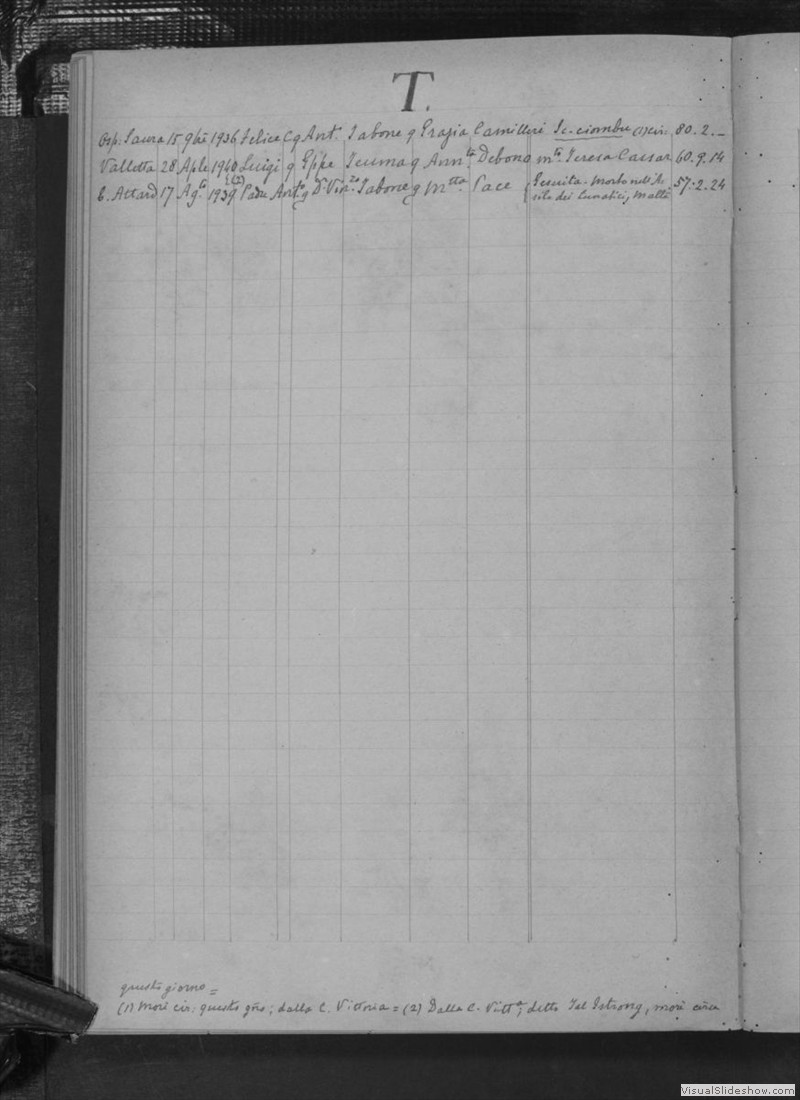 T.
Osp: Saura 15 9bre 1936 Felice C q Ant.° Tabone q Grazia Camilleri Iċ-ċiombu (1) cir: 80. 2. –
Valletta 28 Aple 1940 Luigi q Gppe Teuma q Annta Debono mto Teresa Cassar 60. 9. 14
C. Attard 17 Ag.to 1939 (2) Padre Anto q Dr Vinzo Tabone q Mtta Pace Gesuita - Morto nell'A- 57. 2. 24
silo dei Lunatici, Malta
questo giorno =
(1) Morì cir: questo gno; dalla C. Vittoria = (2) Dalla C. Vitta, detto Tal Istrong, morì circa
VisualSlideshow.com